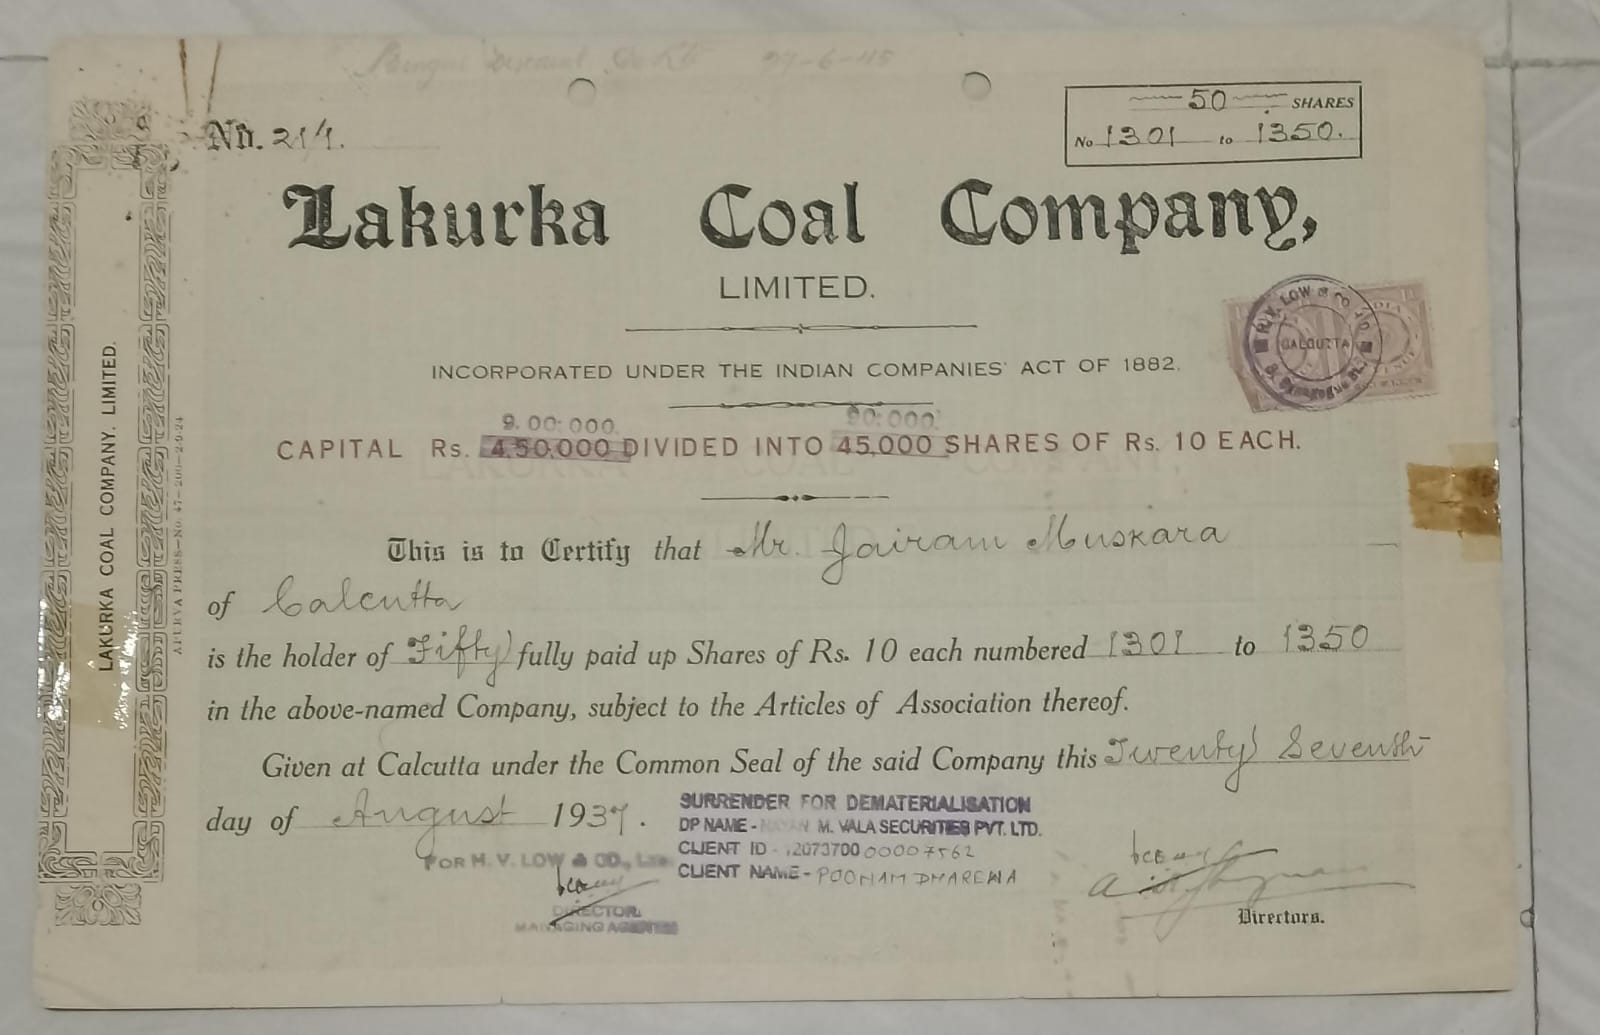 27-6-45
50 SHARES
No. 214.
No 1301 to 1350.
Lakurka Coal Company,
LIMITED.
H. V. LOW & CO. LTD.
CALCUTTA
INCORPORATED UNDER THE INDIAN COMPANIES' ACT OF 1882.
9.00:000. 90:000.
CAPITAL Rs. 4,50,000 DIVIDED INTO 45,000 SHARES OF Rs. 10 EACH.
This is to Certify that Mr. Jairam Muskara
of Calcutta
is the holder of Fifty fully paid up Shares of Rs. 10 each numbered 1301 to 1350
in the above-named Company, subject to the Articles of Association thereof.
Given at Calcutta under the Common Seal of the said Company this Twenty Seventh
day of August 1937.
SURRENDER FOR DEMATERIALISATION
DP NAME - NAYAN M. VALA SECURITIES PVT. LTD.
CLIENT ID - 12073700 00007562
CLIENT NAME - POONAM DHAREWA
FOR H. V. LOW & CO., LTD.
DIRECTOR.
MANAGING AGENTS
Directors.
LAKURKA COAL COMPANY. LIMITED.
APURVA PRESS—No. 47—200—2-9-24